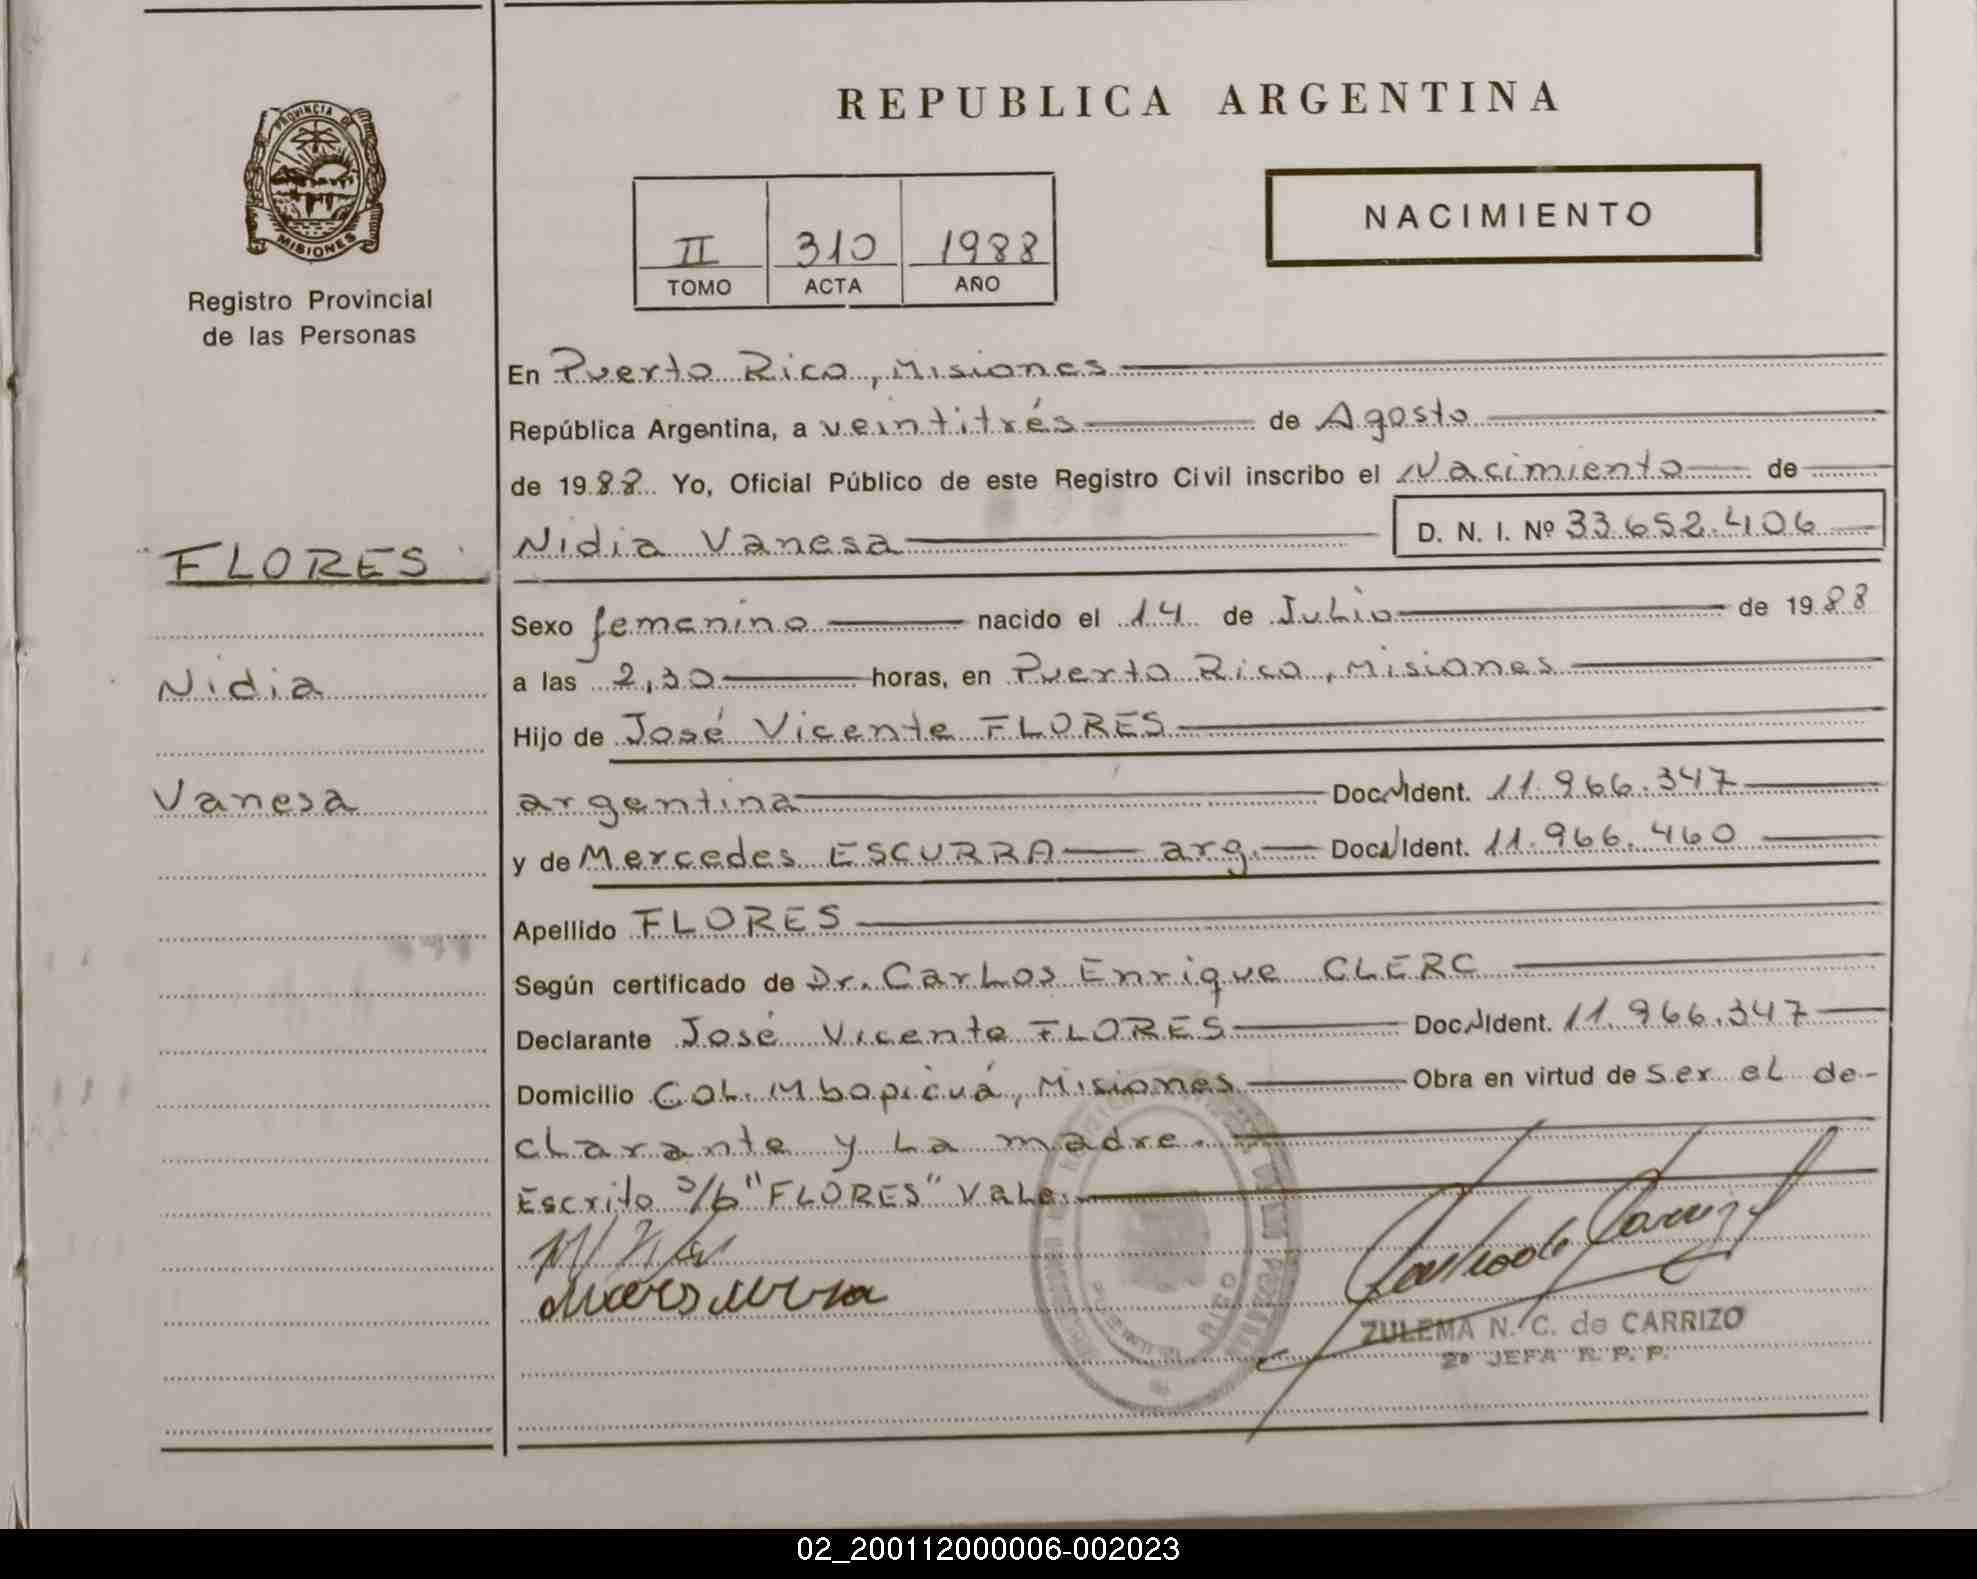 PROVINCIA DE
MISIONES
Registro Provincial
de las Personas
FLORES
Nidia
Vanesa
REPUBLICA ARGENTINA
II 310 1988
TOMO ACTA AÑO
NACIMIENTO
En Puerto Rico, Misiones
República Argentina, a veintitrés de Agosto
de 1988 Yo, Oficial Público de este Registro Civil inscribo el Nacimiento de
Nidia Vanesa D. N. I. Nº 33.652.406
Sexo femenino nacido el 14 de Julio de 1988
a las 2,30 horas, en Puerto Rico, Misiones
Hijo de José Vicente FLORES
argentina Doc.N.Ident. 11.966.347
y de Mercedes ESCURRA arg. Doc.N.Ident. 11.966.460
Apellido FLORES
Según certificado de Dr. Carlos Enrique CLERC
Declarante José Vicente FLORES Doc.N.Ident. 11.966.347
Domicilio Col. Mbopicuá, Misiones Obra en virtud de ser el de-
clarante y la madre.
Escrito s/b "FLORES" Vale.
ZULEMA N. C. de CARRIZO
2º JEFA R. P. P.
02_200112000006-002023